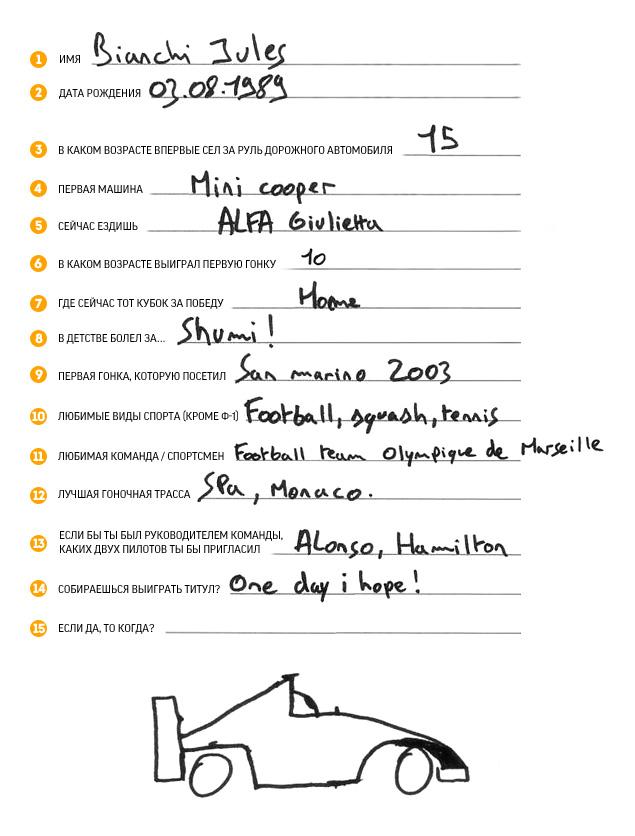 1 ИМЯ Bianchi Jules
2 ДАТА РОЖДЕНИЯ 03.08.1989
3 В КАКОМ ВОЗРАСТЕ ВПЕРВЫЕ СЕЛ ЗА РУЛЬ ДОРОЖНОГО АВТОМОБИЛЯ 15
4 ПЕРВАЯ МАШИНА Mini cooper
5 СЕЙЧАС ЕЗДИШЬ ALFA Giulietta
6 В КАКОМ ВОЗРАСТЕ ВЫИГРАЛ ПЕРВУЮ ГОНКУ 10
7 ГДЕ СЕЙЧАС ТОТ КУБОК ЗА ПОБЕДУ Home
8 В ДЕТСТВЕ БОЛЕЛ ЗА... Shumi!
9 ПЕРВАЯ ГОНКА, КОТОРУЮ ПОСЕТИЛ San marino 2003
10 ЛЮБИМЫЕ ВИДЫ СПОРТА (КРОМЕ Ф-1) Football, squash, tennis
11 ЛЮБИМАЯ КОМАНДА / СПОРТСМЕН Football team Olympique de Marseille
12 ЛУЧШАЯ ГОНОЧНАЯ ТРАССА Spa, Monaco.
13 ЕСЛИ БЫ ТЫ БЫЛ РУКОВОДИТЕЛЕМ КОМАНДЫ,
КАКИХ ДВУХ ПИЛОТОВ ТЫ БЫ ПРИГЛАСИЛ ALonso, Hamilton
14 СОБИРАЕШЬСЯ ВЫИГРАТЬ ТИТУЛ? One day i hope!
15 ЕСЛИ ДА, ТО КОГДА?